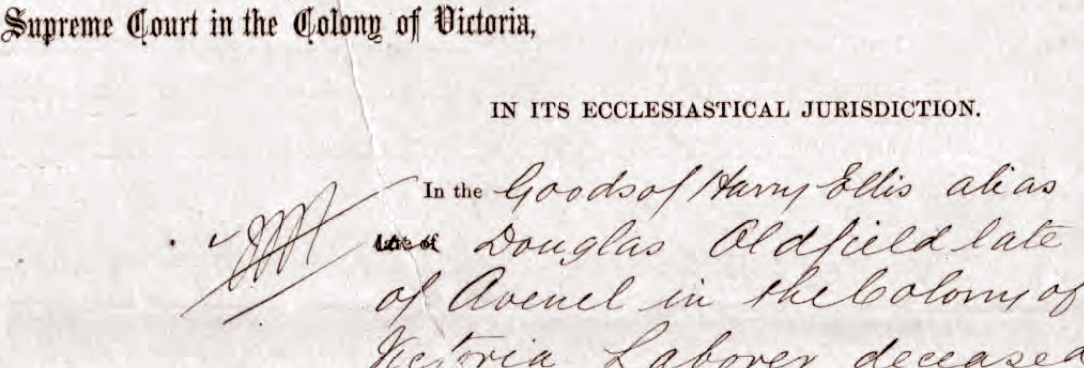 Supreme Court in the Colony of Victoria,
IN ITS ECCLESIASTICAL JURISDICTION.
In the Goods of Harry Ellis alias
late of Douglas Oldfield late
of Avenel in the Colony of
Victoria Laborer deceased